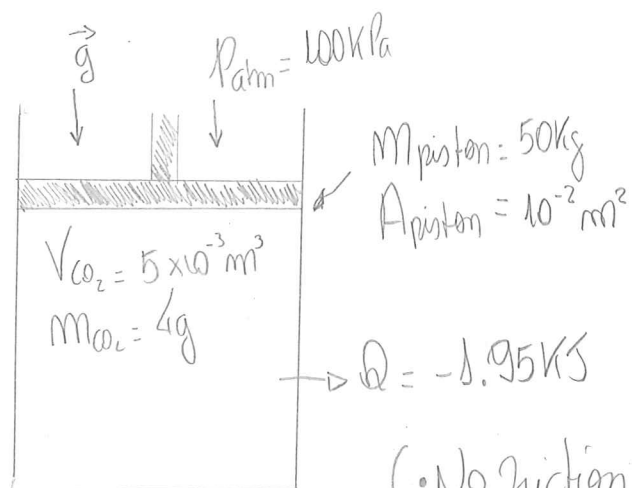 g⃗
Patm = 100KPa
Mpiston = 50Kg
Apiston = 10⁻² m²
VCO₂ = 5 × 10⁻³ m³
mCO₂ = 4g
Q = -1.95KJ
(• No friction